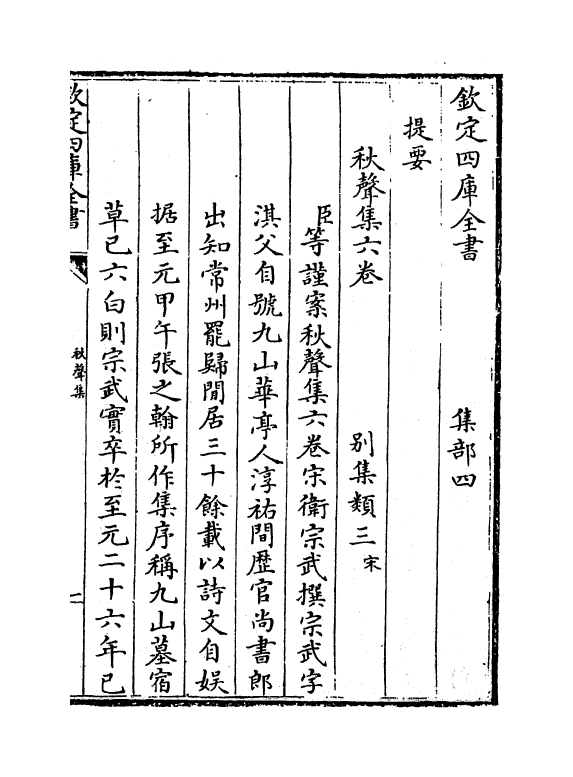 欽定四庫全書　集部四
提要
秋聲集六卷　別集類三宋
臣等謹案秋聲集六卷宋衛宗武撰宗武字
淇父自號九山華亭人淳祐間歴官尚書郎
出知常州罷歸閒居三十餘載以詩文自娱
据至元甲午張之翰所作集序稱九山墓宿
草已六白則宗武實卒於至元二十六年已
欽定四庫全書
秋聲集
一